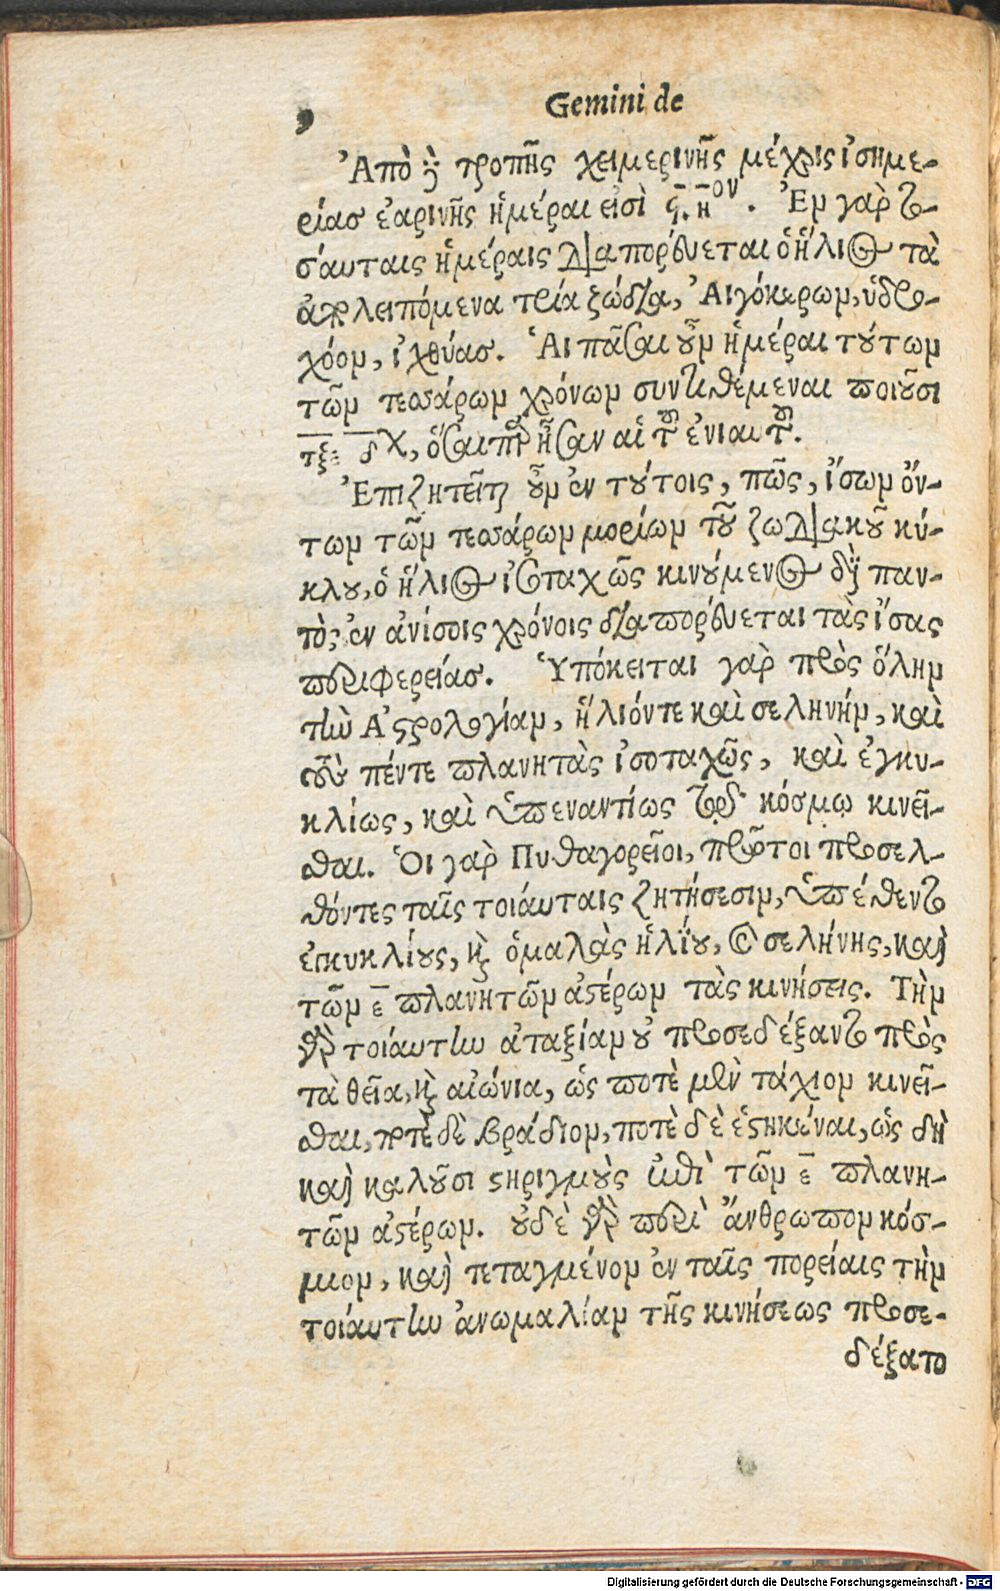 Gemini de
Ἀπὸ δὲ τροπῆς χειμερινῆς μέχρις ἰσημε-
ρίας ἐαρινῆς ἡμέραι εἰσὶ ϛ. η ον. Ἐν γὰρ το-
σάυταις ἡμέραις διαπορεύεται ὁ ἥλιος τὰ
ἀπολειπόμενα τρία ζώδια, Ἀιγόκερων, ὑδρο-
χόον, ἰχθύας. Ἁι πᾶσαι οὖν ἡμέραι τούτων
τῶν τεσσάρων χρόνων συντιθέμεναι ποιοῦσι
τξε δχ, ὅσαιπερ ἦσαν αἱ τοῦ ἐνιαυτοῦ.
Ἐπιζητεῖται οὖν ἐν τούτοις, πῶς, ἴσων ὄν-
των τῶν τεσσάρων μορίων τοῦ ζωδιακοῦ κύ-
κλου, ὁ ἥλιος ἰσοταχῶς κινούμενος διὰ παν-
τὸς ἐν ἀνίσοις χρόνοις διαπορεύεται τὰς ἴσας
περιφερείας. Ὑπόκειται γὰρ πρὸς ὅλην
τὴν Ἀςρολογίαν, ἥλιόντε καὶ σεληνήν, καὶ
τοὺς πέντε πλανητὰς ἰσοταχῶς, καὶ ἐγκυ-
κλίως, καὶ ὑπεναντίως τῷ κόσμῳ κινεῖ-
σθαι. Ὁι γὰρ Πυθαγορεῖοι, πρῶτοι προσελ-
θόντες ταῖς τοιάυταις ζητήσεσιν, ὑπέθεντο
ἐγκυκλίους, καὶ ὁμαλὰς ἡλίου, καὶ σελήνης, καὶ
τῶν ε πλανητῶν ἀςέρων τὰς κινήσεις. Τὴν
γὰρ τοιάυτην ἀταξίαν οὐ προσεδέξαντο πρὸς
τὰ θεῖα, καὶ αἰώνια, ὡς ποτὲ μὲν τάχιον κινεῖ-
σθαι, ποτὲ δὲ βράδιον, ποτὲ δὲ ἑςηκέναι, ὡς δὴ
καὶ καλοῦσι ςηριγμοὺς ἐπὶ τῶν ε πλανη-
τῶν ἀςέρων. οὐδὲ γὰρ περὶ ἄνθρωπον κόσ-
μιον, καὶ τεταγμένον ἐν ταῖς πορείαις τὴν
τοιάυτην ἀνωμαλίαν τῆς κινήσεως προσε-
δέξατο
Digitalisierung gefördert durch die Deutsche Forschungsgemeinschaft - DFG